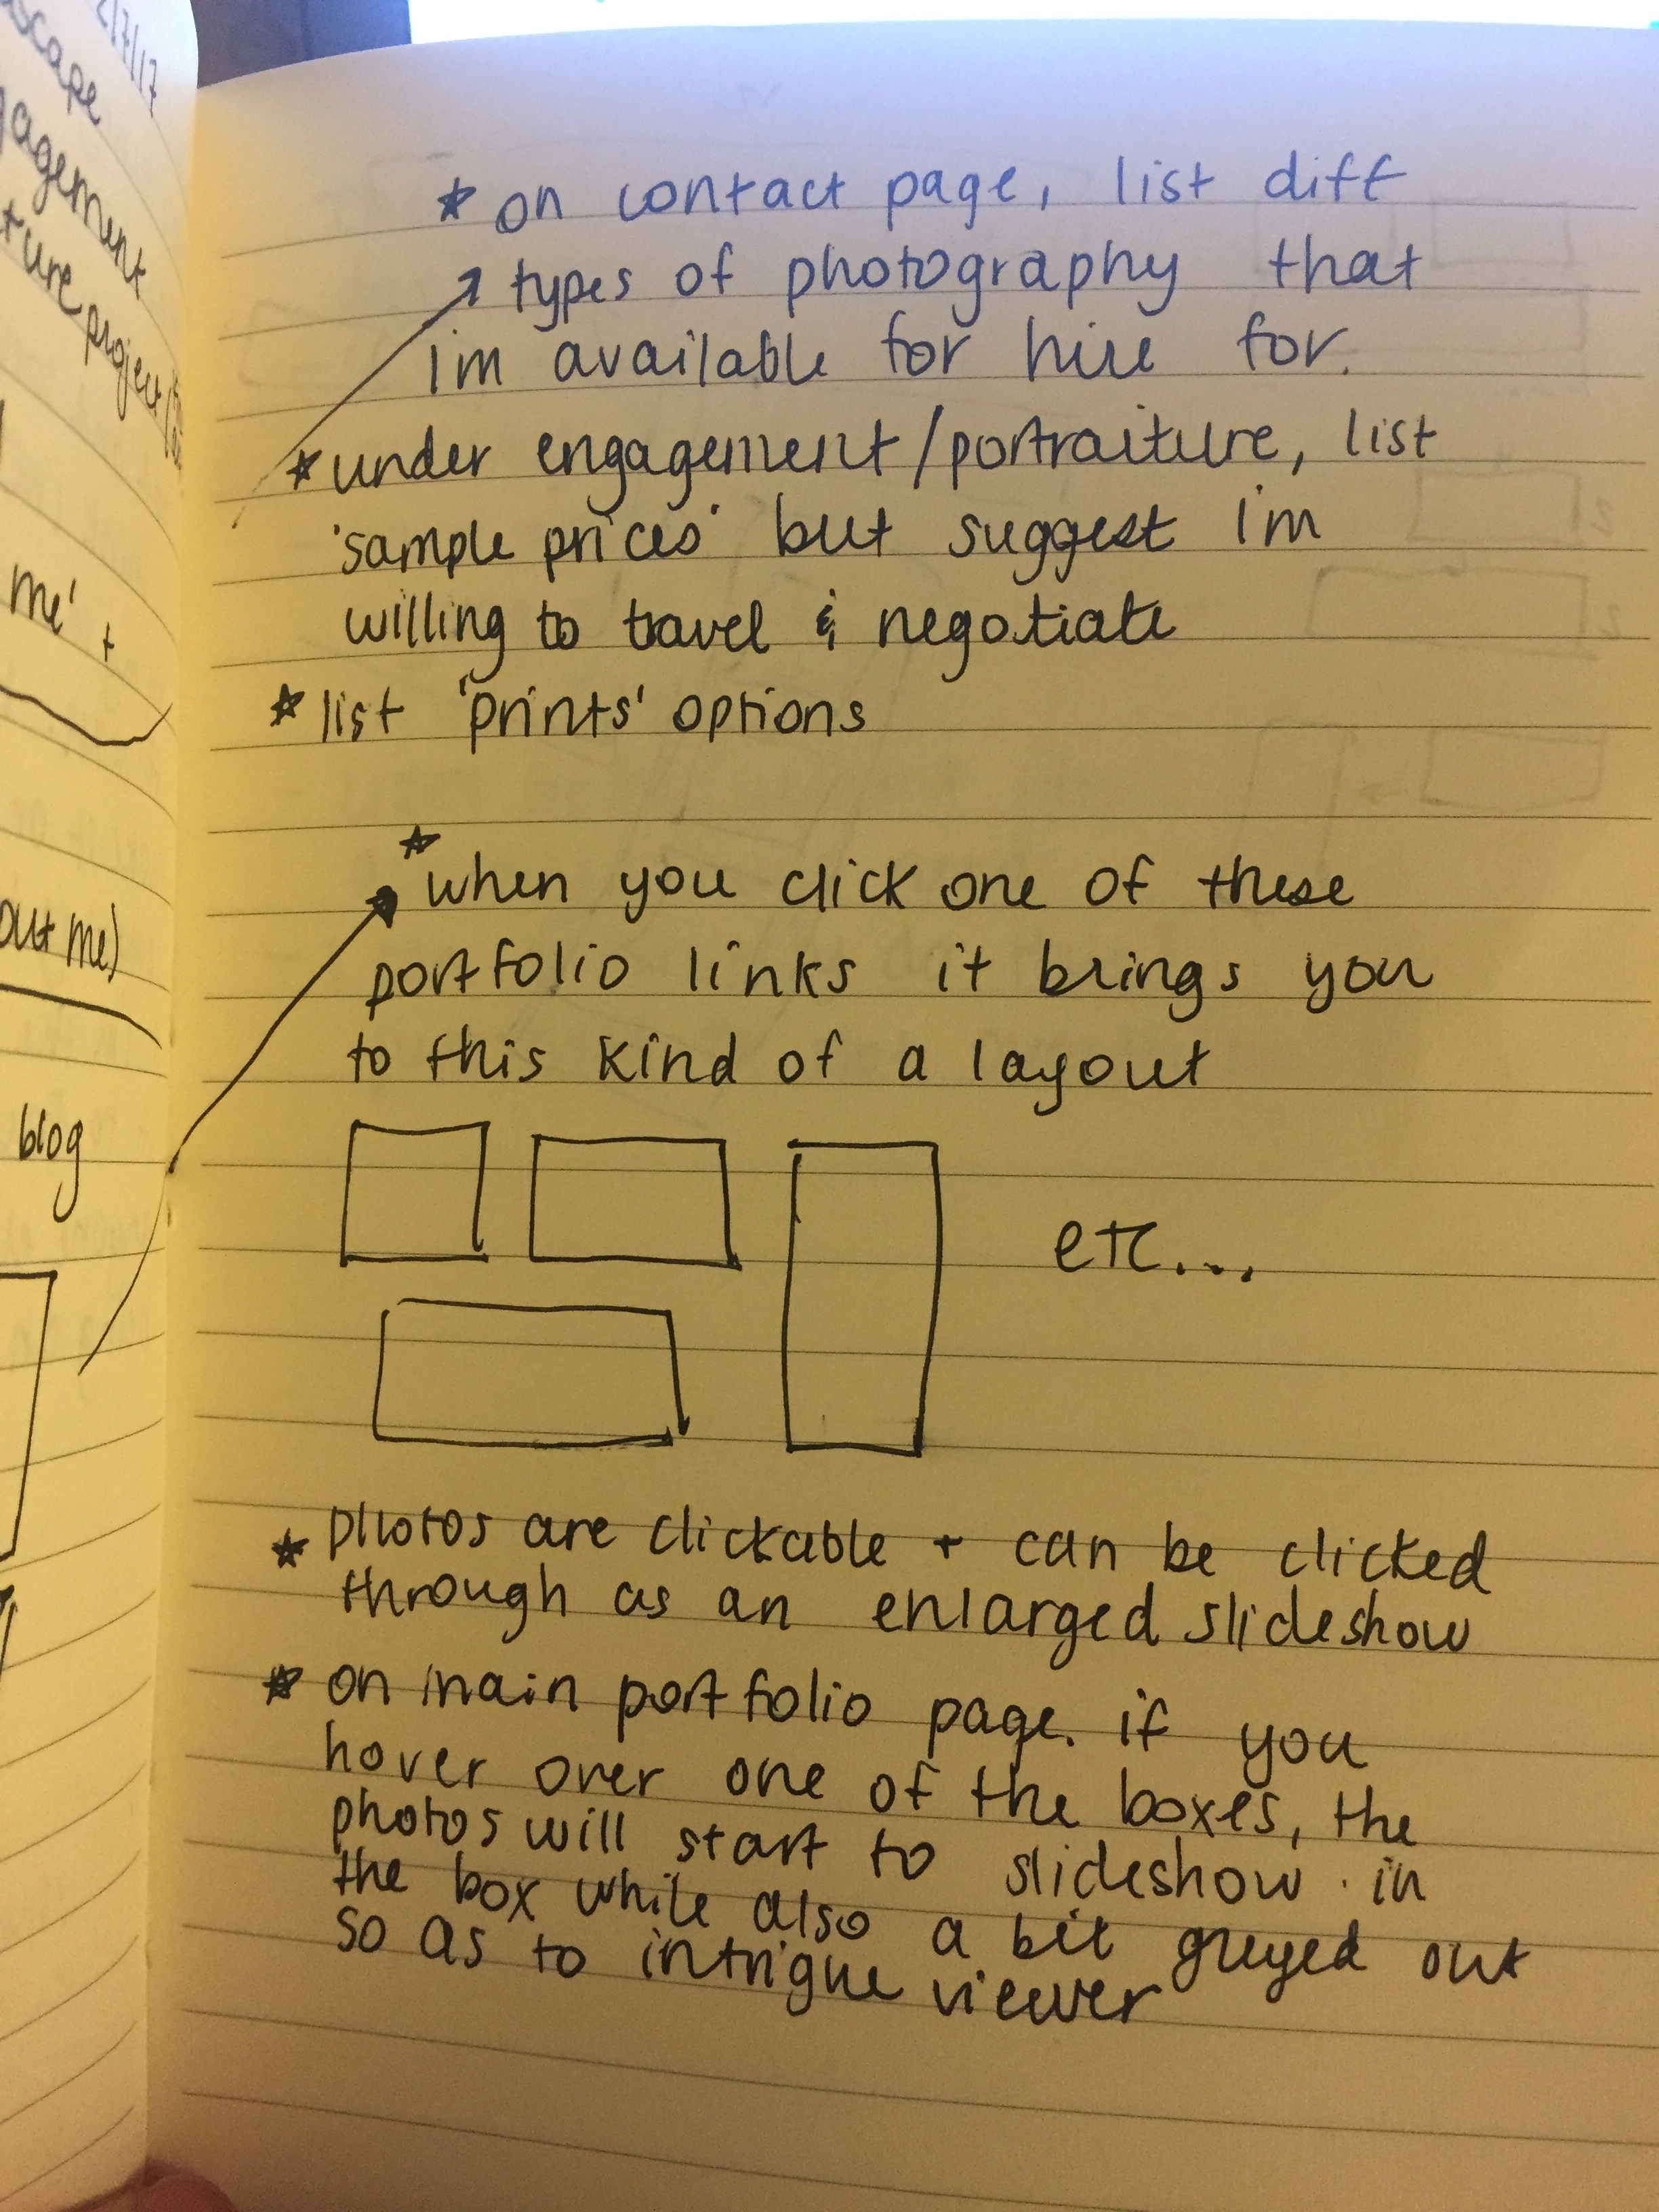 2/7/17
scape
gagement
ture project/
me' +
out me)
blog
* on contact page, list diff
types of photography that
i'm available for hire for.
* under engagement/portraiture, list
'sample prices' but suggest i'm
willing to travel & negotiate
* list 'prints' options
*
when you click one of these
portfolio links it brings you
to this kind of a layout
etc...
* photos are clickable + can be clicked
through as an enlarged slideshow
* on main portfolio page. if you
hover over one of the boxes, the
photos will start to slideshow in
the box while also a bit greyed out
so as to intrigue viewer